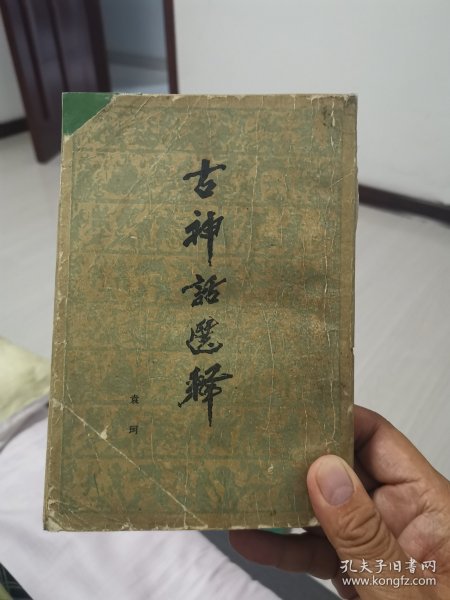 古神话选释
袁珂
孔夫子旧书网
www.kongfz.com